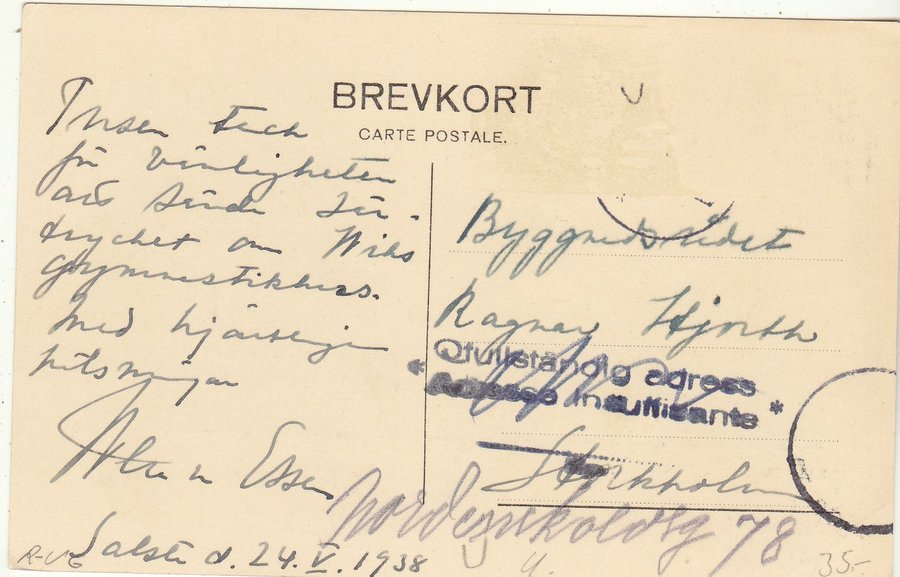 BREVKORT
CARTE POSTALE.
Tusen tack
för vänligheten
att sända sär-
trycket om Wiks
gymnastikhus.
Med hjärtliga
hälsningar
Essen
Salsta d. 24.V.1938
Byggnadsrådet
Ragnar Hjorth
Ofullständig adress
* Adresse insuffisante *
Stockholm
Nordenskiöldsg 78
R-UG
U
35-